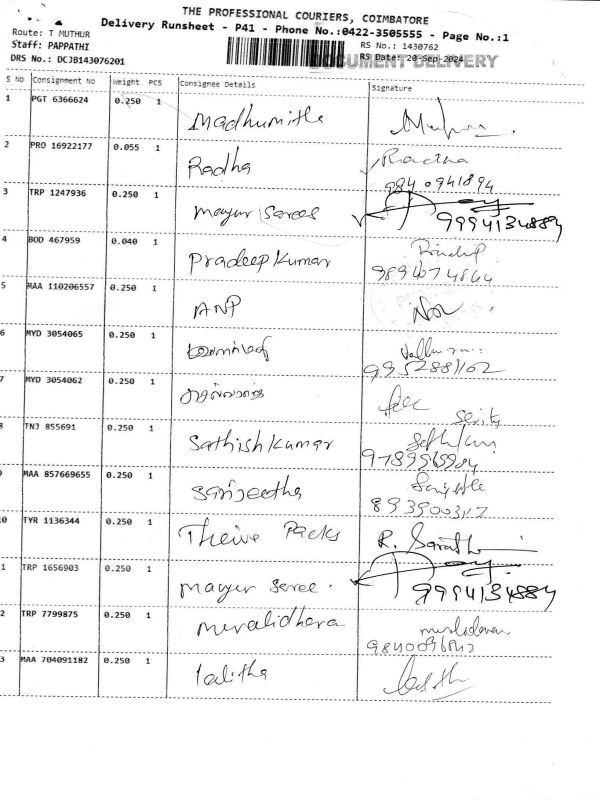 THE PROFESSIONAL COURIERS, COIMBATORE
Delivery Runsheet - P41 - Phone No.:0422-3505555 - Page No.:1
Route: T MUTHUR
Staff: PAPPATHI
DRS No.: DCJB143076201
RS No.: 1430762
RS Date: 20-Sep-2024
DOCUMENT DELIVERY
S NO Consignment No Weight PCS Consignee Details Signature
1 PGT 6366624 0.250 1 Madhumitha
2 PRO 16922177 0.055 1 Radha Radha
9840941894
3 TRP 1247936 0.250 1 Mayur Sarees
9994134884
4 BOD 467959 0.040 1 Pradeep Kumar
9894074864
5 MAA 110206557 0.250 1 ANP
6 MYD 3054065 0.250 1
9952881162
7 MYD 3054062 0.250 1
8 TNJ 855691 0.250 1 Sathish Kumar
9 MAA 857669655 0.250 1 Sanjeetha
10 TYR 1136344 0.250 1 Theive Packs R. Sarath
11 TRP 1656903 0.250 1 Mayur Saree.
9994134884
12 TRP 7799875 0.250 1 Muralidhara
13 MAA 704091182 0.250 1 lalitha